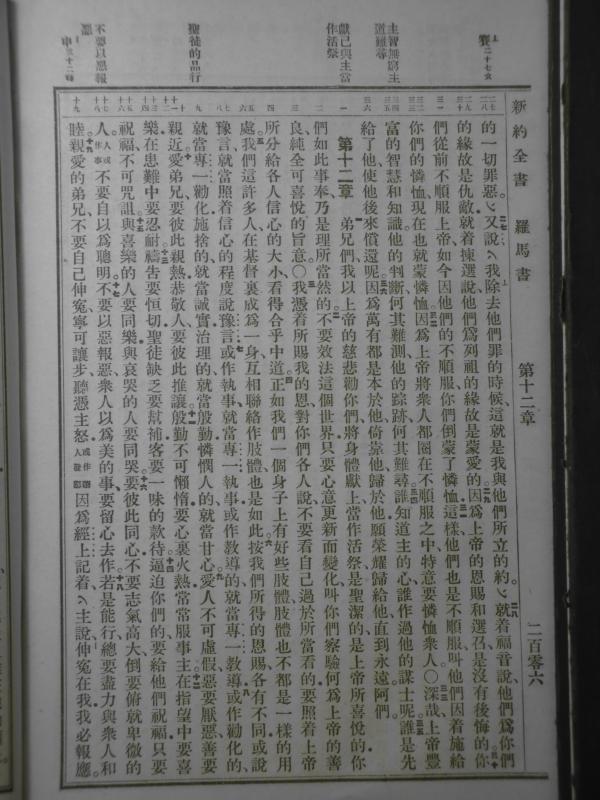 新約全書 羅馬書 第十二章 二百零六
賽二十七
主智無窮主道難尋
獻己與主當作活祭
聖徒的品行
不要以惡報惡
申三十二
的一切罪惡、又說、我除去他們罪的時候、這就是我與他們所立的約、就着福音說、他們爲你們
的緣故是仇敵、就着揀選說、他們爲列祖的緣故是蒙愛的、因爲上帝的恩賜和選召是沒有後悔的、你
們從前不順服上帝、如今因他們的不順服、你們倒蒙了憐恤、這樣他們也是不順服、叫他們因着施給
你們的憐恤、現在也就蒙憐恤、因爲上帝將衆人都圈在不順服之中、特意要憐恤衆人○深哉上帝豐
富的智慧和知識、他的判斷何其難測、他的踪跡何其難尋、誰知道主的心、誰作過他的謀士呢、誰是先
給了他、使他後來償還呢、因爲萬有都是本於他、倚靠他、歸於他、願榮耀歸給他、直到永遠、阿們。
第十二章 弟兄們、我以上帝的慈悲勸你們、將身體獻上、當作活祭、是聖潔的、是上帝所喜悅的、你
們如此事奉、乃是理所當然的、不要效法這個世界、只要心意更新而變化、叫你們察驗何爲上帝的善
良、純全可喜悅的旨意○我憑着所賜我的恩、對你們各人說、不要看自己過於所當看的、要照着上帝
所分給各人信心的大小、看得合乎中道、正如我們一個身子上有好些肢體、肢體也不都是一樣的用
處、我們這許多人、在基督裏成爲一身、互相聯絡作肢體、也是如此、按我們所得的恩賜、各有不同、或說
豫言、就當照着信心的程度說豫言、或作執事、就當專一執事、或作教導的、就當專一教導、或作勸化的、
就當專一勸化、施捨的、就當誠實、治理的、就當殷勤、憐憫人的、就當甘心、愛人不可虛假、惡要厭惡、善要
親近、愛弟兄、要彼此親熱、恭敬人、要彼此推讓、殷勤不可懶惰、要心裏火熱、常常服事主、在指望中要喜
樂、在患難中要忍耐、禱告要恒切、聖徒缺乏要幫補、客要一味的款待、逼迫你們的、要給他們祝福、只要
祝福、不可咒詛、與喜樂的人要同樂、與哀哭的人要同哭、要彼此同心、不要志氣高大、倒要俯就卑微的
人、人或作事不要自以爲聰明、不要以惡報惡、衆人以爲美的事、要留心去作、若是能行、總要盡力與衆人和
睦、親愛的弟兄、不要自己伸冤、寧可讓步、聽憑主怒、或作讓人發怒因爲經上記着、主說、伸冤在我、我必報應。